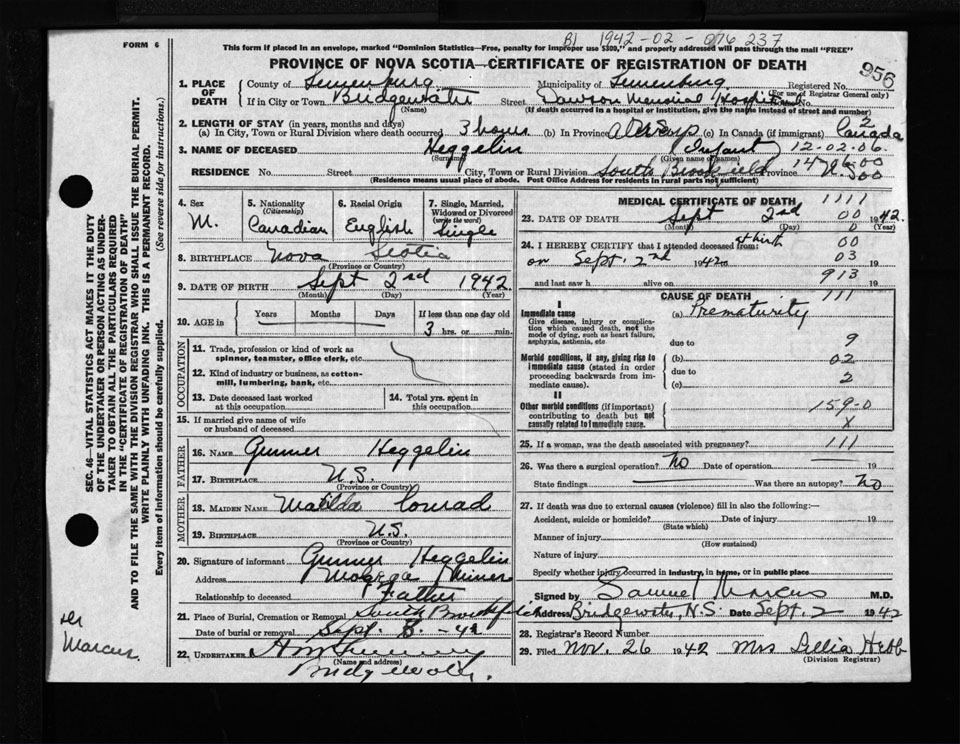 BJ 1942-02-076 237
FORM 6
This form if placed in an envelope, marked "Dominion Statistics—Free, penalty for improper use $300," and properly addressed will pass through the mail "FREE"
PROVINCE OF NOVA SCOTIA—CERTIFICATE OF REGISTRATION OF DEATH
956
SEC. 46—VITAL STATISTICS ACT MAKES IT THE DUTY
OF THE UNDERTAKER OR PERSON ACTING AS UNDER-
TAKER TO OBTAIN ALL THE PARTICULARS REQUIRED
IN THE "CERTIFICATE OF REGISTRATION OF DEATH"
AND TO FILE THE SAME WITH THE DIVISION REGISTRAR WHO SHALL ISSUE THE BURIAL PERMIT.
WRITE PLAINLY WITH UNFADING INK. THIS IS A PERMANENT RECORD.
Every item of information should be carefully supplied. (See reverse side for instructions.)
1. PLACE OF DEATH County of Lunenburg Municipality of Lunenburg Registered No.
(For use of Registrar General only)
If in City or Town Bridgewater Street Dawson Memorial Hospital No.
(Name) (If death occurred in a hospital or institution, give the name instead of street and number)
2. LENGTH OF STAY (in years, months and days)
(a) In City, Town or Rural Division where death occurred 3 hours (b) In Province (c) In Canada (if immigrant) Canada 2
3. NAME OF DECEASED Heggelin (Infant) 12-02-06
(Surname) (Given name or names)
RESIDENCE No. Street City, Town or Rural Division South Brookfield Province N.S.
(Residence means usual place of abode. Post Office Address for residents in rural parts not sufficient)
4. Sex M.
5. Nationality (Citizenship) Canadian
6. Racial Origin English
7. Single, Married, Widowed or Divorced (write the word) Single
8. BIRTHPLACE Nova Scotia
(Province or Country)
9. DATE OF BIRTH Sept 2nd 1942
(Month) (Day) (Year)
10. AGE in Years Months Days If less than one day old
3 hrs. or min.
OCCUPATION
11. Trade, profession or kind of work as spinner, teamster, office clerk, etc.
12. Kind of industry or business, as cotton-mill, lumbering, bank, etc.
13. Date deceased last worked at this occupation
14. Total yrs. spent in this occupation
15. If married give name of wife or husband of deceased
FATHER
16. NAME Gunner Heggelin
17. BIRTHPLACE U.S.
(Province or Country)
MOTHER
18. MAIDEN NAME Matilda Conrad
19. BIRTHPLACE U.S.
(Province or Country)
20. Signature of informant Gunner Heggelin
Address Molega Mines
Relationship to deceased Father
21. Place of Burial, Cremation or Removal South Brookfield
Date of burial or removal Sept. 8 - 42
22. UNDERTAKER
(Name and address)
Bridgewater.
MEDICAL CERTIFICATE OF DEATH 1111
23. DATE OF DEATH Sept 2nd 00 1942.
(Month) (Day) 0 (Year)
24. I HEREBY CERTIFY that I attended deceased from: at birth 00
on Sept. 2nd 1942 03 19
and last saw h alive on 913 19
CAUSE OF DEATH 111
I
Immediate cause (a) Prematurity
Give disease, injury or complication which caused death, not the mode of dying, such as heart failure, asphyxia, asthenia, etc
due to 9
Morbid conditions, if any, giving rise to immediate cause (stated in order proceeding backwards from immediate cause).
(b) 02
due to 2
(c)
II
Other morbid conditions (if important) contributing to death but not causally related to immediate cause.
159-0
X
25. If a woman, was the death associated with pregnancy? 111
26. Was there a surgical operation? No Date of operation 19
State findings Was there an autopsy? No
27. If death was due to external causes (violence) fill in also the following:—
Accident, suicide or homicide? Date of injury 19
(State which)
Manner of injury
(How sustained)
Nature of injury
Specify whether injury occurred in industry, in home, or in public place
Signed by Samuel Marcus M.D.
Address Bridgewater, N.S. Date Sept. 2 1942
28. Registrar's Record Number
29. Filed Nov. 26 1942 Mrs Lillia Hebb
(Division Registrar)
Marcus.